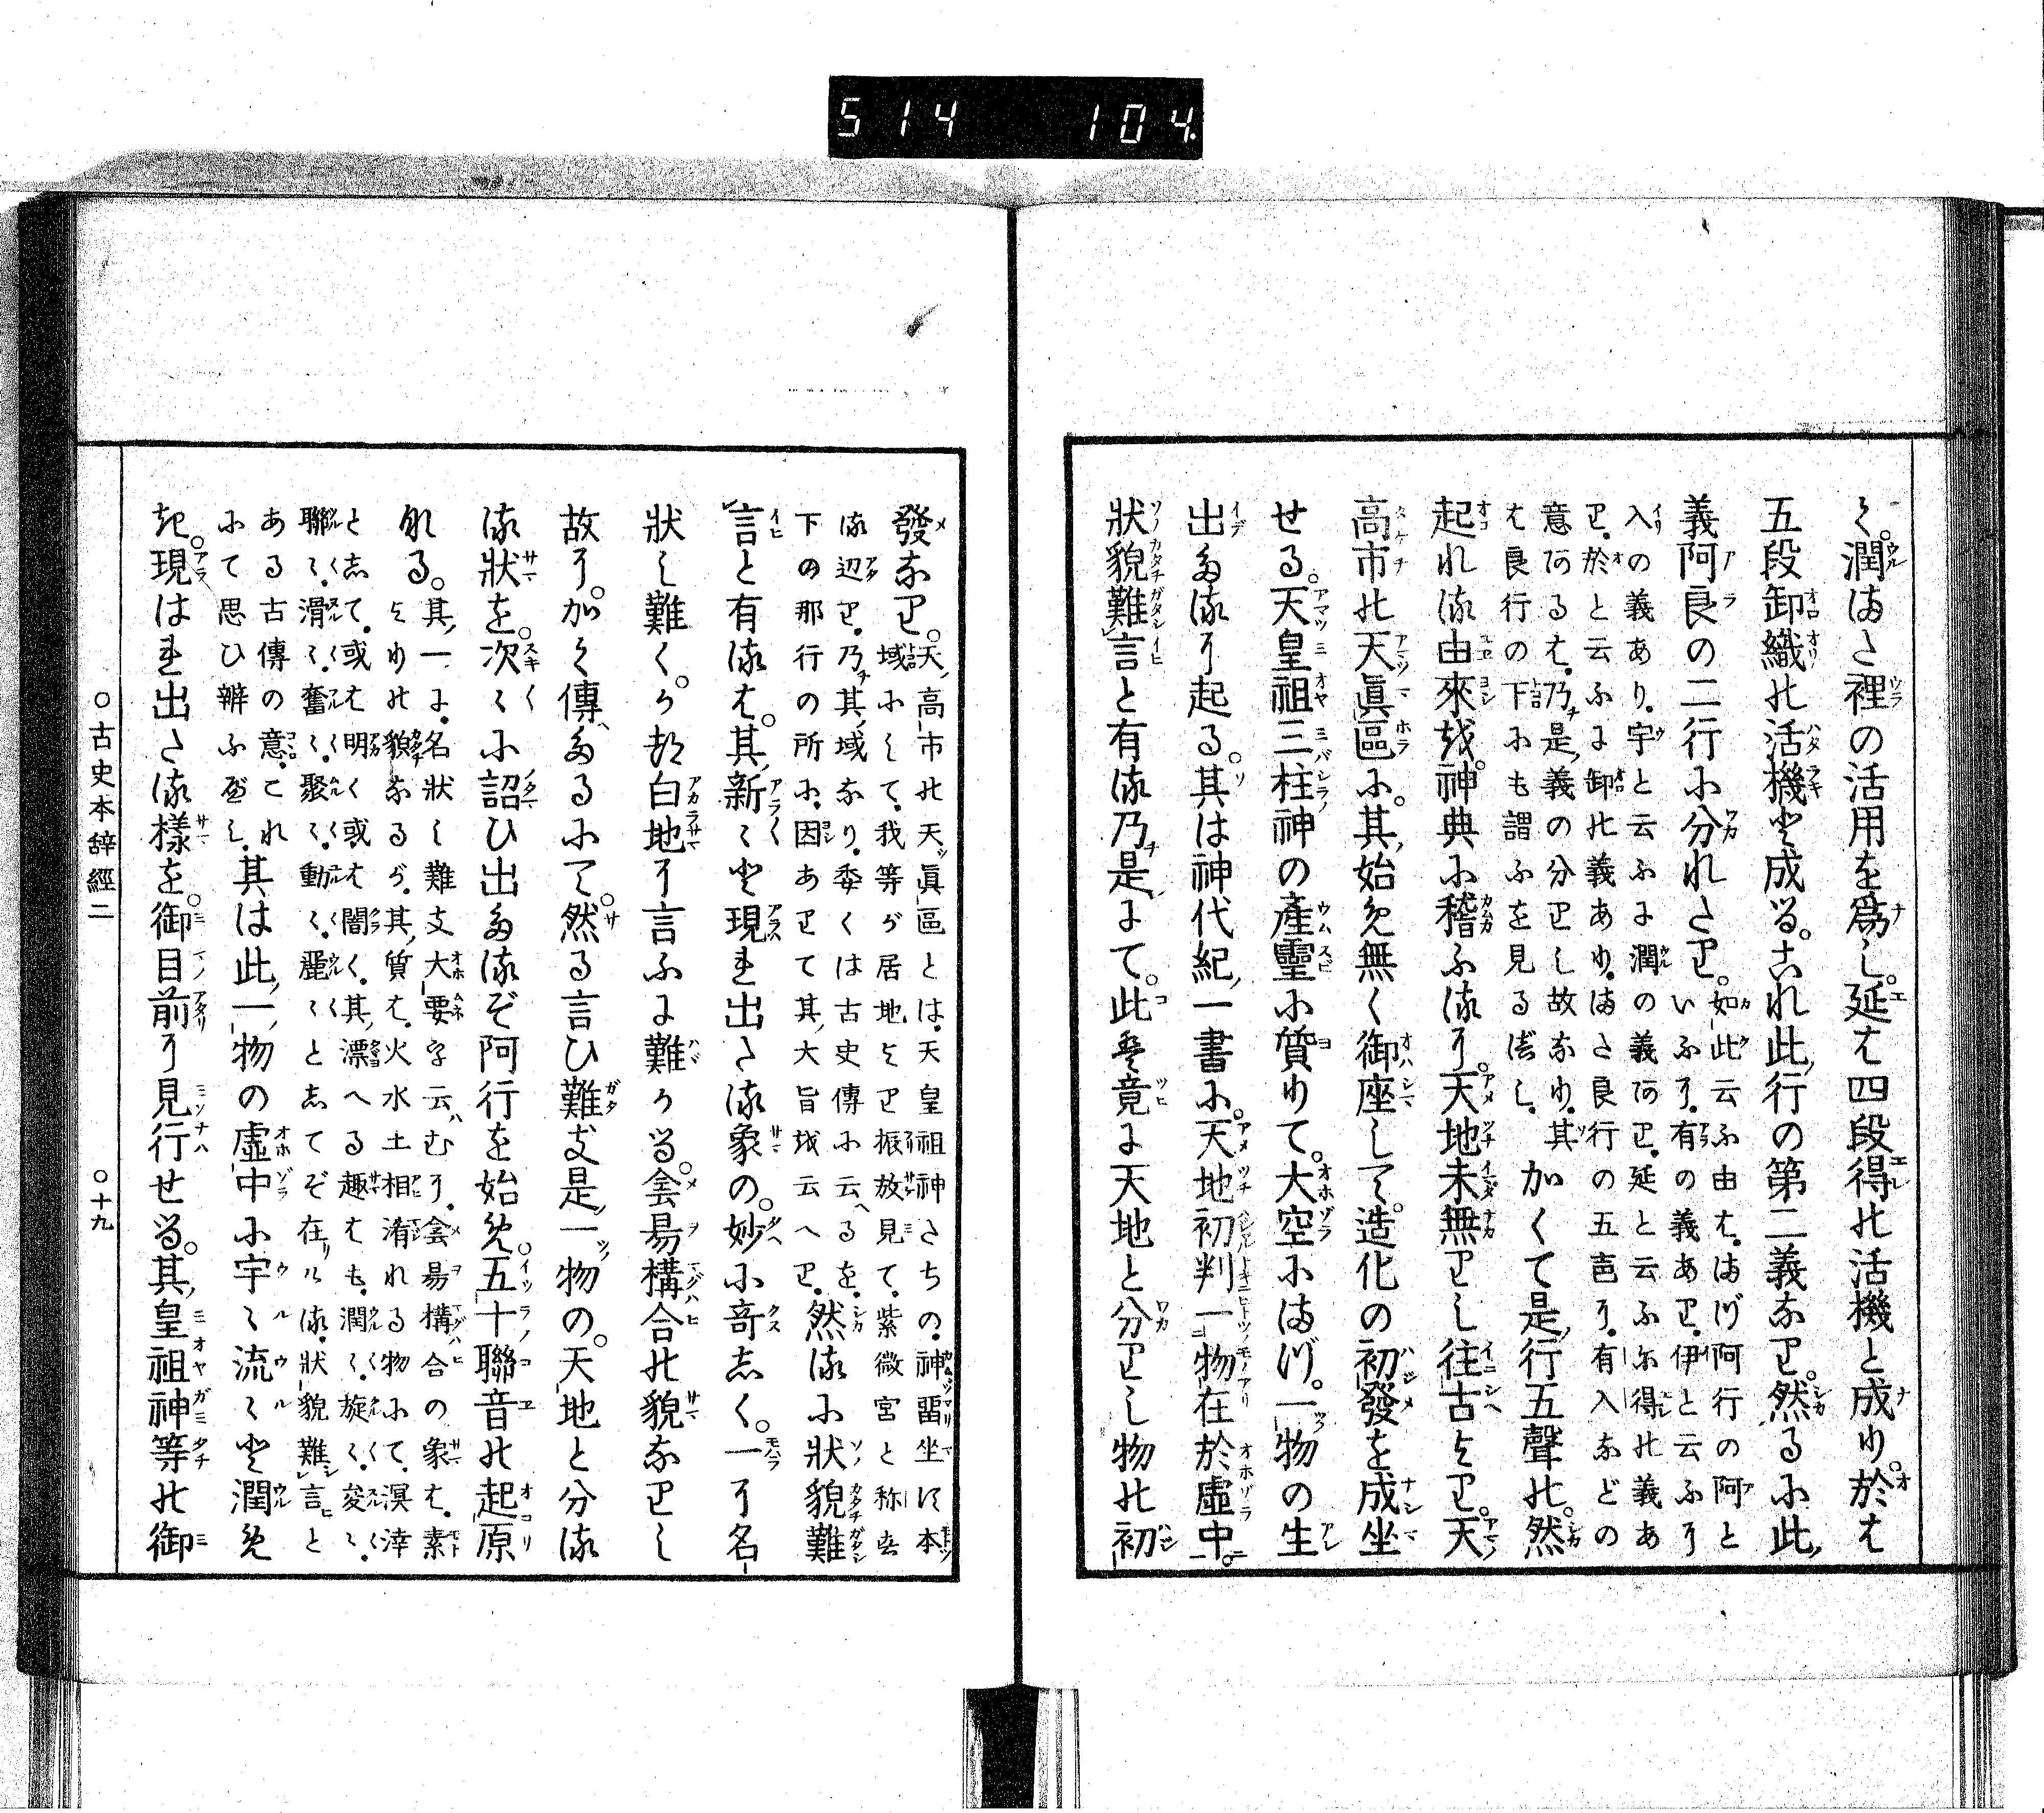 514 104
く。潤はさ裡の活用を爲し。延は四段得の活機と成り。於は
五段卸織の活機と成る。これ此行の第二義なり。然るに此
義阿良の二行に分れたり。如此云ふ由は。まづ阿行の阿と
いふに。有の義あり。伊と云ふに
入の義あり。宇と云ふに潤の義あり。延と云ふに得の義あ
り。於と云ふに卸の義あり。また良行の五音に。有入などの
意あるは。乃是義の分りし故なり。其
は良行の下にも謂ふを見るべし。
かくて是行五聲の。然
起れる由來を。神典に稽ふるに。天地未無りし往古より。天
高市の天眞區に。其始め無く御座して。造化の初發を成坐
せる。天皇祖三柱神の產靈に資りて。大空にまづ。一物の生
出たるに起る。其は神代紀一書に。天地初判一物在於虛中。
狀貌難言と有る乃是にて。此畢竟に天地と分りし物の初
發なり。天高市の天眞區とは。天皇祖神たちの。神留坐す本
域にして。我等が居地より振放見て。紫微宮と称す
る辺り。乃其域なり。委くは古史傳に云へるを。
下の那行の所に。因ありて其大旨を云へり。
然るに狀貌難
言と有るは。其新々と現れ出たる象の。妙に奇しく。一に名
狀し難く。か都白地に言ふに難かる。侌昜構合の貌なりし
故に。かく傳たるにて。然る言ひ難き是一物の。天地と分る
る狀を。次々に詔ひ出たるぞ阿行を始め。五十聯音の起原
なる。其一に。名狀し難き大要を云むに。侌昜構合の象は。素
よりの貌なるが。其質は。火水土相淆れる物にて。溟涬
として。或は明く或は闇く。其漂へる趣はも。潤く。旋く。焌く。
聯く。滑く。奮く。聚く。動く。麗くとしてぞ在ける。狀貌難言と
ある古傳の意。これ
にて思ひ辨ふべし。
其は此一物の虛中に宇く流くと潤め
き。現はれ出たる樣を。御目前に見行せる。其皇祖神等の御
○古史本辞經二
○十九